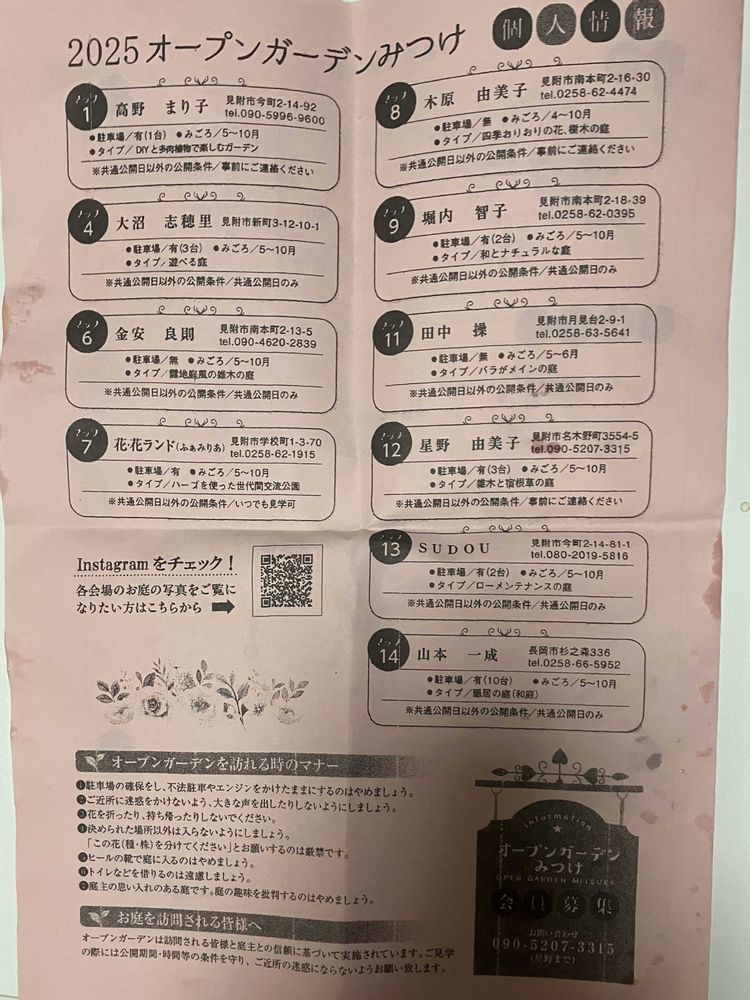 2025 オープンガーデンみつけ
個人情報
マップ
1
高野 まり子
見附市今町2-14-92
tel.090-5996-9600
●駐車場/有(1台) ●みごろ/5〜10月
●タイプ/DIYと多肉植物で楽しむガーデン
※共通公開日以外の公開条件/事前にご連絡ください
マップ
4
大沼 志穂里
見附市新町3-12-10-1
●駐車場/有(3台) ●みごろ/5〜10月
●タイプ/遊べる庭
※共通公開日以外の公開条件/共通公開日のみ
マップ
6
金安 良則
見附市南本町2-13-5
tel.090-4620-2839
●駐車場/無 ●みごろ/5〜10月
●タイプ/露地庭風の雑木の庭
※共通公開日以外の公開条件/共通公開日のみ
マップ
7
花・花ランド(ふぁみりあ)
見附市学校町1-3-70
tel.0258-62-1915
●駐車場/有 ●みごろ/5〜10月
●タイプ/ハーブを使った世代間交流公園
※共通公開日以外の公開条件/いつでも見学可
Instagramをチェック!
各会場のお庭の写真をご覧に
なりたい方はこちらから
マップ
8
木原 由美子
見附市南本町2-16-30
tel.0258-62-4474
●駐車場/無 ●みごろ/4〜10月
●タイプ/四季おりおりの花、樹木の庭
※共通公開日以外の公開条件/事前にご連絡ください
マップ
9
堀内 智子
見附市南本町2-18-39
tel.0258-62-0395
●駐車場/有(2台) ●みごろ/5〜10月
●タイプ/和とナチュラルな庭
※共通公開日以外の公開条件/共通公開日のみ
マップ
11
田中 操
見附市月見台2-9-1
tel.0258-63-5641
●駐車場/無 ●みごろ/5〜6月
●タイプ/バラがメインの庭
※共通公開日以外の公開条件/共通公開日のみ
マップ
12
星野 由美子
見附市名木野町3554-5
tel.090-5207-3315
●駐車場/有(3台) ●みごろ/5〜10月
●タイプ/雑木と宿根草の庭
※共通公開日以外の公開条件/事前にご連絡ください
マップ
13
SUDOU
見附市今町2-14-81-1
tel.080-2019-5816
●駐車場/有(2台) ●みごろ/5〜10月
●タイプ/ローメンテナンスの庭
※共通公開日以外の公開条件/共通公開日のみ
マップ
14
山本 一成
長岡市杉之森336
tel.0258-66-5952
●駐車場/有(10台) ●みごろ/5〜10月
●タイプ/隠居の庭(和庭)
※共通公開日以外の公開条件/共通公開日のみ
オープンガーデンを訪れる時のマナー
❶駐車場の確保をし、不法駐車やエンジンをかけたままにするのはやめましょう。
❷ご近所に迷惑をかけないよう、大きな声を出したりしないようにしましょう。
❸花を折ったり、持ち帰ったりしないでください。
❹決められた場所以外は入らないようにしましょう。
「この花(種・株)を分けてください」とお願いするのは厳禁です。
❺ヒールの靴で庭に入るのはやめましょう。
❻トイレなどを借りるのは遠慮しましょう。
❼庭主の思い入れのある庭です。庭の趣味を批判するのはやめましょう。
お庭を訪問される皆様へ
オープンガーデンは訪問される皆様と庭主との信頼に基づいて実施されています。ご見学
の際には公開期間・時間等の条件を守り、ご近所の迷惑にならないようお願い致します。
information
オープンガーデン
みつけ
OPEN GARDEN MITSUKE
会員募集
お問い合わせ
090-5207-3315
(星野まで)